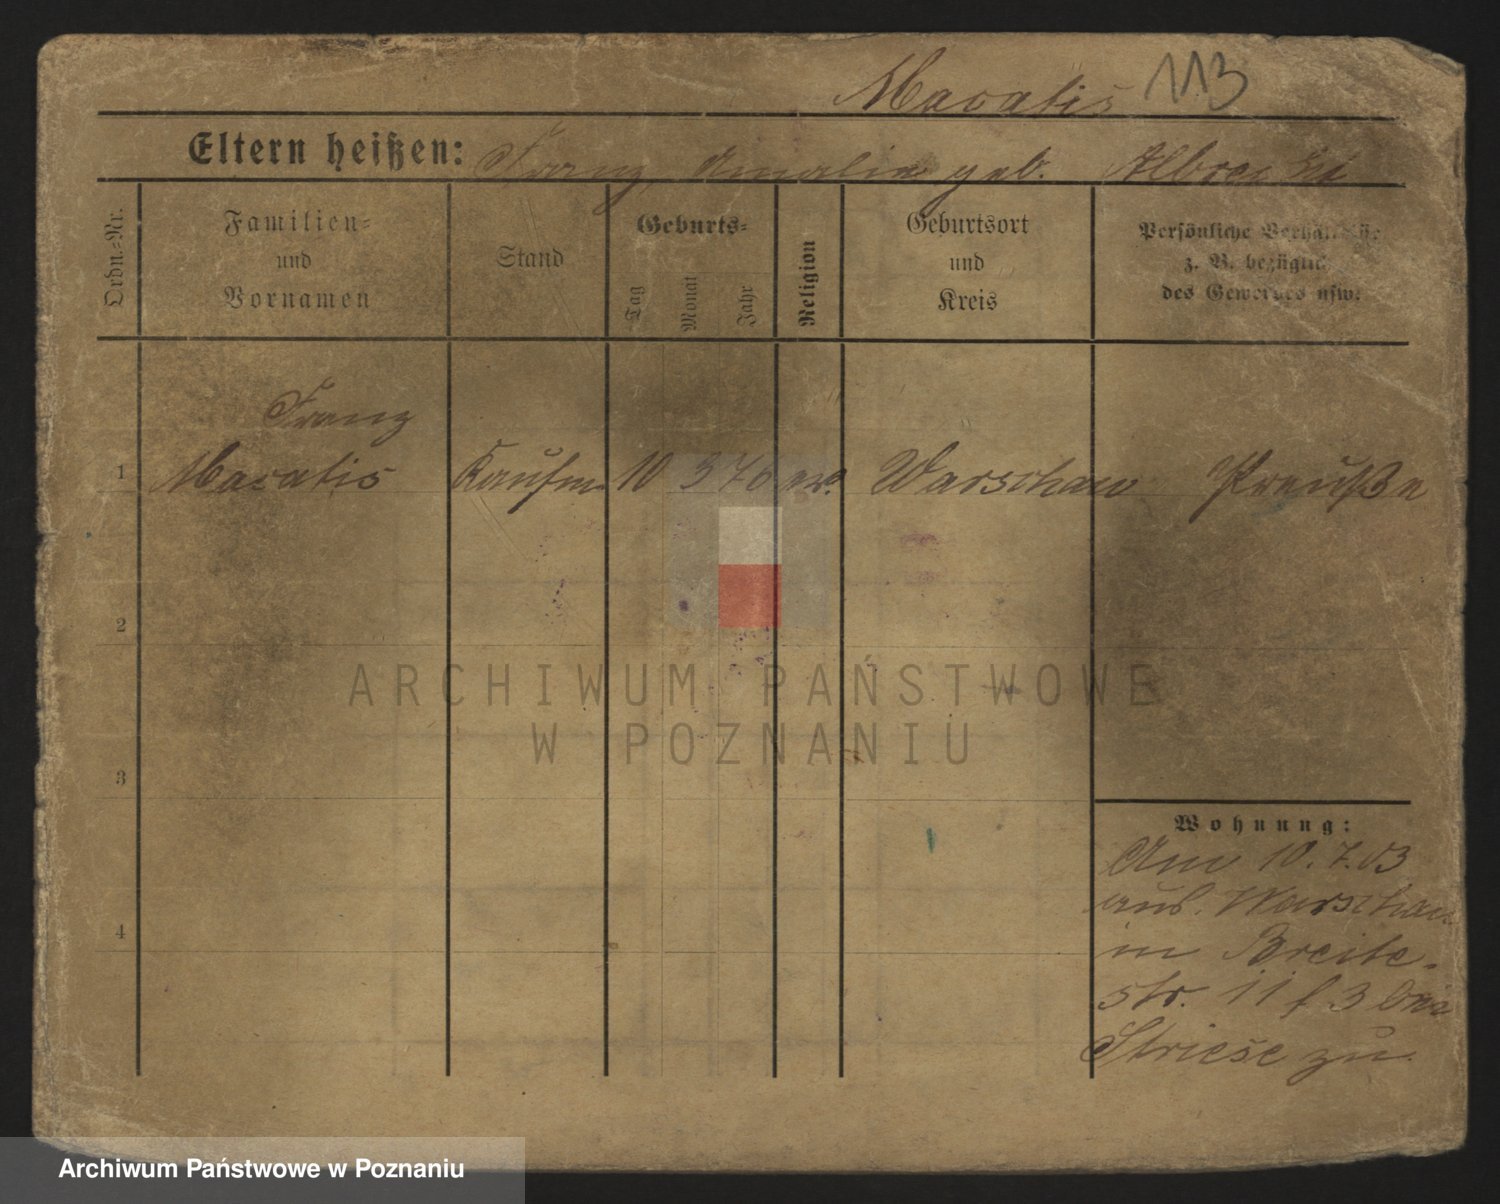 Macatis 113
Eltern heißen: Franz, Amalie geb. Albrecht
Ordn.=Nr.
Familien=
und
Vornamen
Stand
Geburts=
Tag
Monat
Jahr
Religion
Geburtsort
und
Kreis
Persönliche Verhältnisse
z. B. bezüglich
des Gewerbes usw.
Franz
1 Macatis Kaufm. 10 3 76 ev. Warschau Preuße
2
3
4
Wohnung:
Am 10.7.03
aus. Warschau
in Breite-
str. 11 f 3 bei
Striese zu.
ARCHIWUM PAŃSTWOWE
W POZNANIU
Archiwum Państwowe w Poznaniu